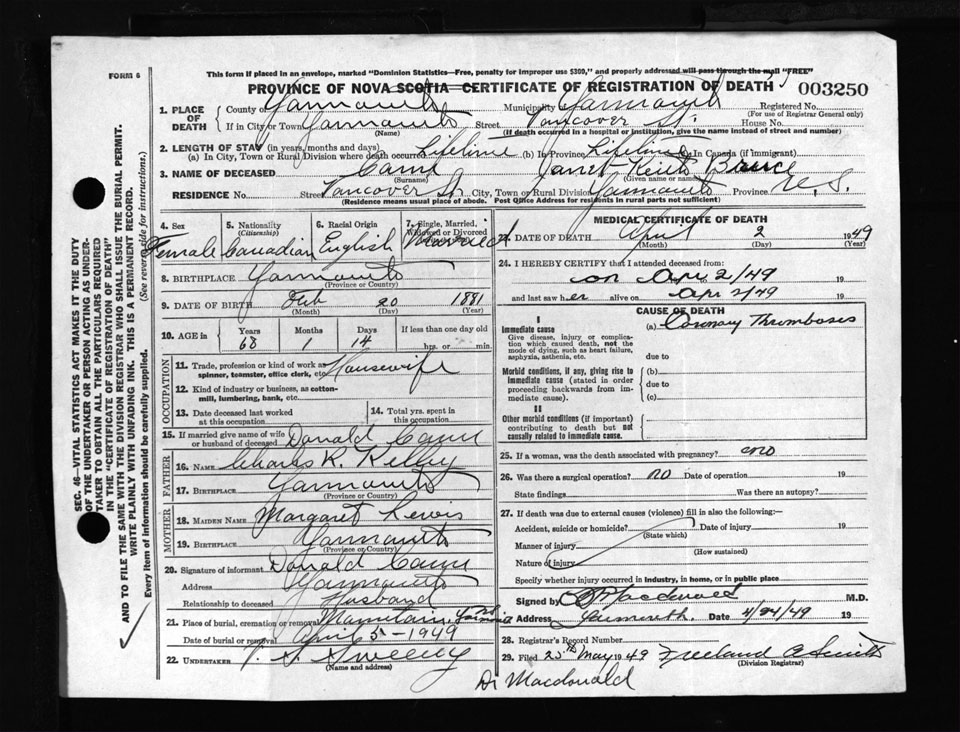 FORM 6
This form if placed in an envelope, marked "Dominion Statistics—Free, penalty for improper use $300," and properly addressed will pass through the mail "FREE"
PROVINCE OF NOVA SCOTIA—CERTIFICATE OF REGISTRATION OF DEATH
003250
1. PLACE OF DEATH County of Yarmouth Municipality Yarmouth Registered No.
(For use of Registrar General only)
If in City or Town Yarmouth Street Vancover St. House No.
(Name) (If death occurred in a hospital or institution, give the name instead of street and number)
2. LENGTH OF STAY (in years, months and days)
(a) In City, Town or Rural Division where death occurred Lifetime (b) In Province Lifetime (c) In Canada (if immigrant)
3. NAME OF DECEASED Cann Janet Keith Bruce
(Surname) (Given name or names)
RESIDENCE No. Street Vancover St. City, Town or Rural Division Yarmouth Province N. S.
(Residence means usual place of abode. Post Office Address for residents in rural parts not sufficient)
4. Sex Female
5. Nationality (Citizenship) Canadian
6. Racial Origin English
7. Single, Married, Widowed or Divorced Married
8. BIRTHPLACE Yarmouth
(Province or Country)
9. DATE OF BIRTH Feb 20 1881
(Month) (Day) (Year)
10. AGE in Years Months Days If less than one day old
68 1 14 hrs. or min.
OCCUPATION
11. Trade, profession or kind of work as spinner, teamster, office clerk, etc. Housewife
12. Kind of industry or business, as cotton-mill, lumbering, bank, etc.
13. Date deceased last worked at this occupation
14. Total yrs. spent in this occupation
15. If married give name of wife or husband of deceased Donald Cann
FATHER
16. NAME Charles R. Kelley
17. BIRTHPLACE Yarmouth
(Province or Country)
MOTHER
18. MAIDEN NAME Margaret Lewis
19. BIRTHPLACE Yarmouth
(Province or Country)
20. Signature of informant Donald Cann
Address Yarmouth
Relationship to deceased Husband
21. Place of burial, cremation or removal Mountain
Date of burial or removal April 5 - 1949
22. UNDERTAKER V. S. Sweeny
(Name and address)
MEDICAL CERTIFICATE OF DEATH
DATE OF DEATH April 2 1949
(Month) (Day) (Year)
24. I HEREBY CERTIFY that I attended deceased from:
on Apr 2/49 19
and last saw her alive on Apr 2/49 19
CAUSE OF DEATH
I
Immediate cause (a) Coronary Thrombosis
Give disease, injury or complication which caused death, not the mode of dying, such as heart failure, asphyxia, asthenia, etc.
due to
Morbid conditions, if any, giving rise to immediate cause (stated in order proceeding backwards from immediate cause).
(b)
due to
(c)
II
Other morbid conditions (if important) contributing to death but not causally related to immediate cause.
25. If a woman, was the death associated with pregnancy? no
26. Was there a surgical operation? no Date of operation 19
State findings Was there an autopsy?
27. If death was due to external causes (violence) fill in also the following:—
Accident, suicide or homicide? Date of injury 19
(State which)
Manner of injury
(How sustained)
Nature of injury
Specify whether injury occurred in industry, in home, or in public place
Signed by Macdonald M.D.
Address Yarmouth. Date 4/24/49 19
28. Registrar's Record Number
29. Filed 25th May 1949 Freeland A Smith
(Division Registrar)
Dr Macdonald
SEC. 46—VITAL STATISTICS ACT MAKES IT THE DUTY
OF THE UNDERTAKER OR PERSON ACTING AS UNDER-
TAKER TO OBTAIN ALL THE PARTICULARS REQUIRED
IN THE "CERTIFICATE OF REGISTRATION OF DEATH"
AND TO FILE THE SAME WITH THE DIVISION REGISTRAR WHO SHALL ISSUE THE BURIAL PERMIT.
WRITE PLAINLY WITH UNFADING INK. THIS IS A PERMANENT RECORD.
Every item of information should be carefully supplied. (See reverse side for instructions.)